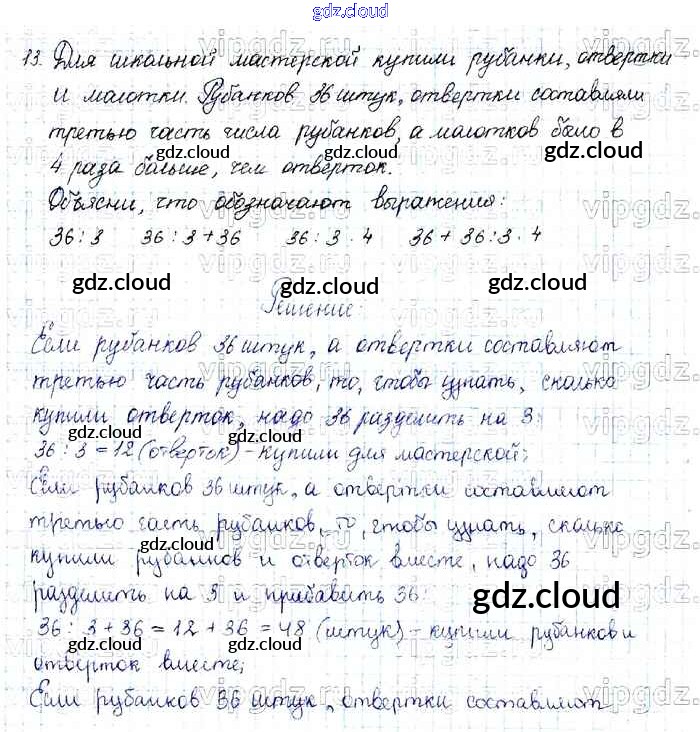 gdz.cloud
13. Для школьной мастерской купили рубанки, отвертки
и молотки. Рубанков 36 штук, отвертки составляли
третью часть числа рубанков, а молотков было в
4 раза больше, чем отверток.
Объясни, что обозначают выражения:
36 : 3 36 : 3 + 36 36 : 3 · 4 36 + 36 : 3 · 4
Решение:
Если рубанков 36 штук, а отвертки составляют
третью часть рубанков, то, чтобы узнать, сколько
купили отверток, надо 36 разделить на 3:
36 : 3 = 12 (отверток) - купили для мастерской;
Если рубанков 36 штук, а отвертки составляют
третью часть рубанков, то, чтобы узнать, сколько
купили рубанков и отверток вместе, надо 36
разделить на 3 и прибавить 36:
36 : 3 + 36 = 12 + 36 = 48 (штук) - купили рубанков и
отверток вместе;
Если рубанков 36 штук, отвертки составляют